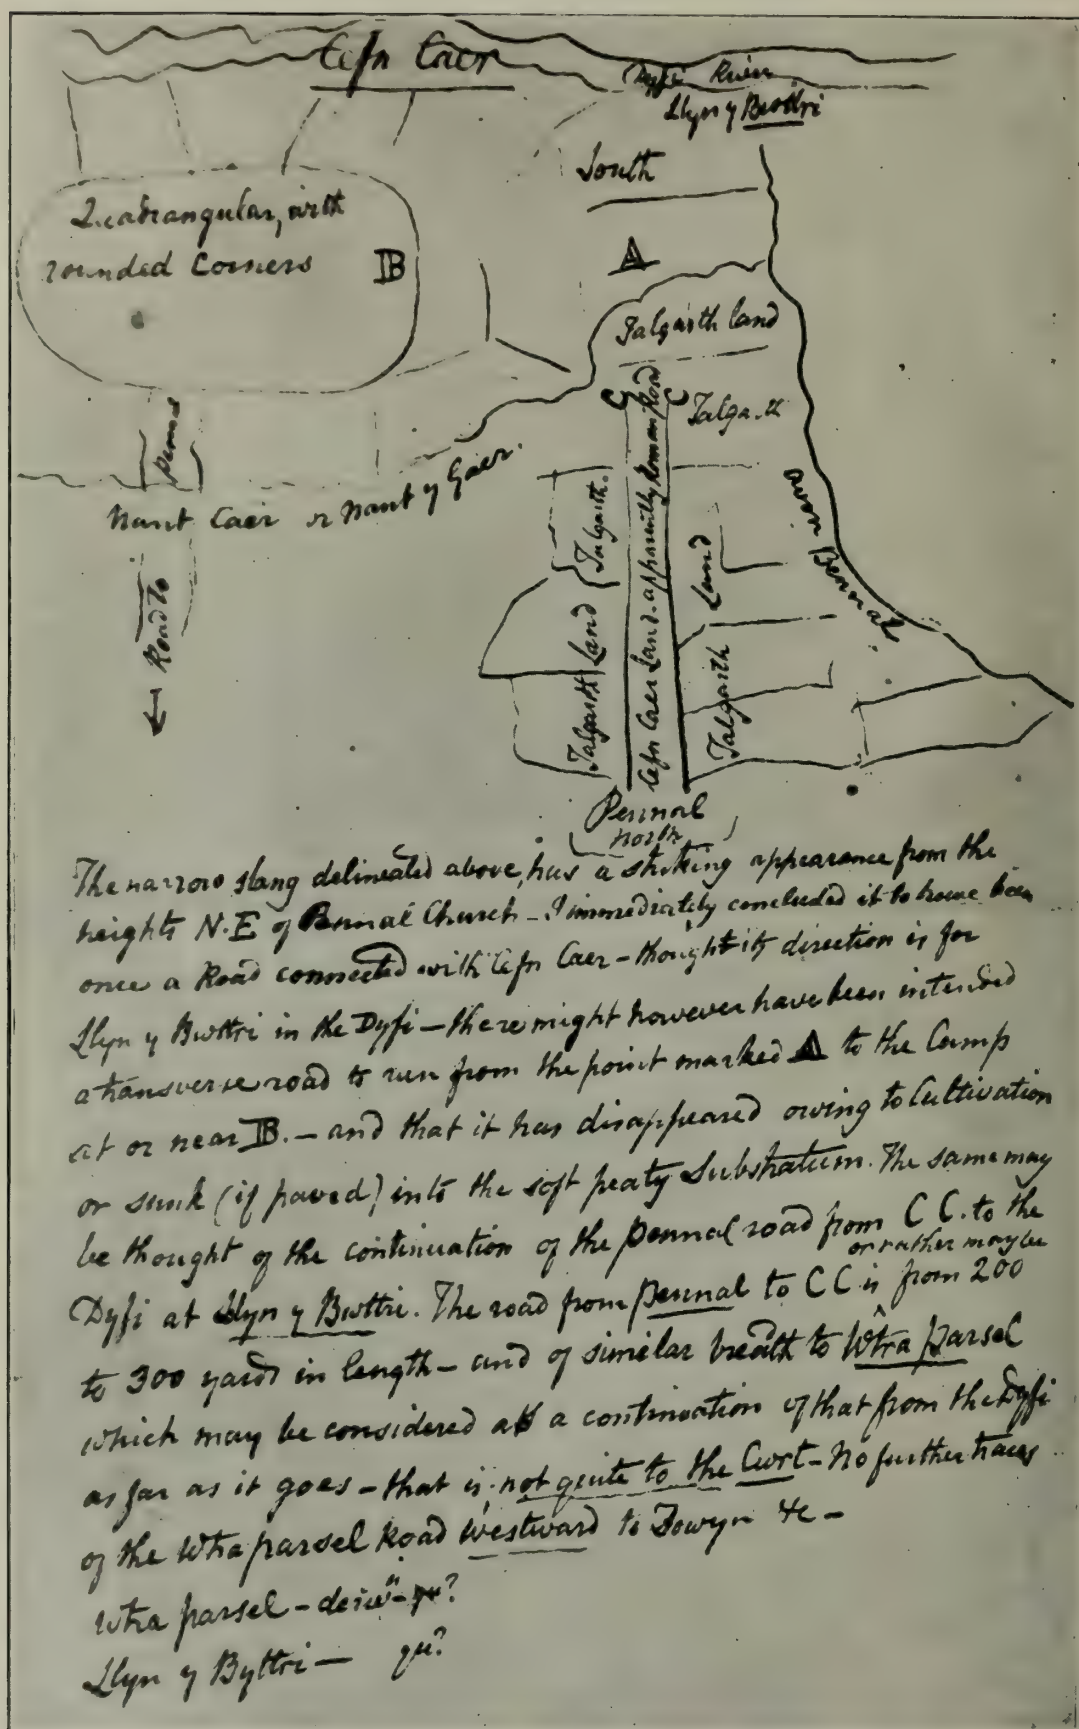 Cefn Caer
Dyfi River
Llyn y Bwttri
South
Quadrangular, with
rounded Corners
B
A
Talgarth land
C C
Talgarth
Nant Caer or Nant y Gaer.
Road to
Talgarth.
Land
Talgarth
Cefn Caer Land - apparently Roman Road
Land
Talgarth
Pennal
Pennal
North
The narrow slang delineated above, has a striking appearance from the
heights N.E of Pennal Church - I immediately concluded it to have been
once a Road connected with Cefn Caer - thought its direction is for
Llyn y Bwttri in the Dyfi - there might however have been intended
a transverse road to run from the point marked A to the Camp
at or near B. - and that it has disappeared owing to Cultivation
or sunk (if paved) into the soft peaty Substratum. The same may
be thought of the continuation of the pennal road from C C. to the
or rather may be
Dyfi at Llyn y Bwttri. The road from pennal to CC is ^ from 200
to 300 yards in length - and of similar breadth to Wtra parsel
which may be considered as a continuation of that from the Dyfi
as far as it goes - that is, not quite to the Cwrt - No further traces
of the Wtra parsel Road westward to Towyn &c -
Wtra parsel - deriv.n - qu?
Llyn y Byttri - qu?